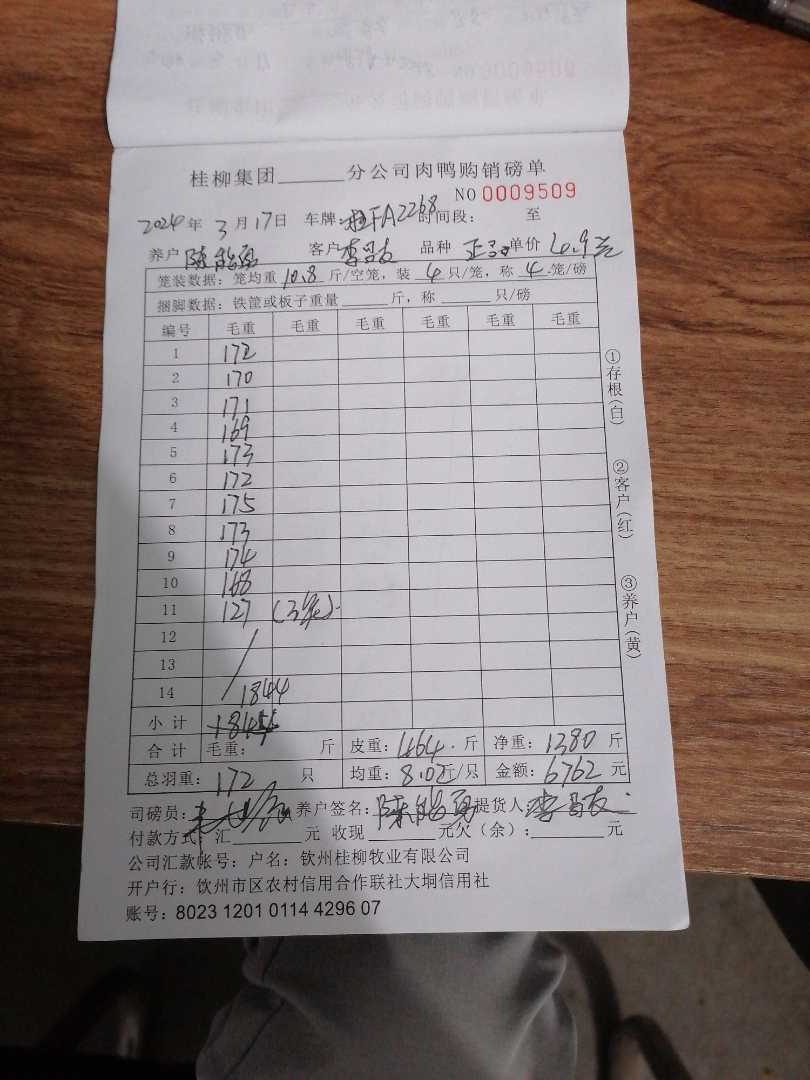 桂柳集团______分公司肉鸭购销磅单
NO 0009509
2024年 3月17日 车牌: 桂FA2268 时间段: 至
养户 陈能勇 客户 李 友 品种 正 单价 4.9元
笼装数据: 笼均重 10.8 斤/空笼, 装 4 只/笼, 称 4 笼/磅
捆脚数据: 铁筐或板子重量______斤, 称______只/磅
编号 毛重 毛重 毛重 毛重 毛重 毛重
1 172
2 170
3 171
4 169
5 173
6 172
7 175
8 173
9 174
10 168
11 127 (3笼)
12
13
14 1844
小计
合计 毛重: 斤 皮重: 464 斤 净重: 1380 斤
总羽重: 172 只 均重: 8.02斤/只 金额: 6762 元
司磅员: 养户签名: 陈能勇 提货人: 李 友
付款方式: 汇______元 收现______元欠(余):______元
公司汇款帐号: 户名: 钦州桂柳牧业有限公司
开户行: 钦州市区农村信用合作联社大垌信用社
账号: 8023 1201 0114 4296 07
①存根(白)
②客户(红)
③养户(黄)